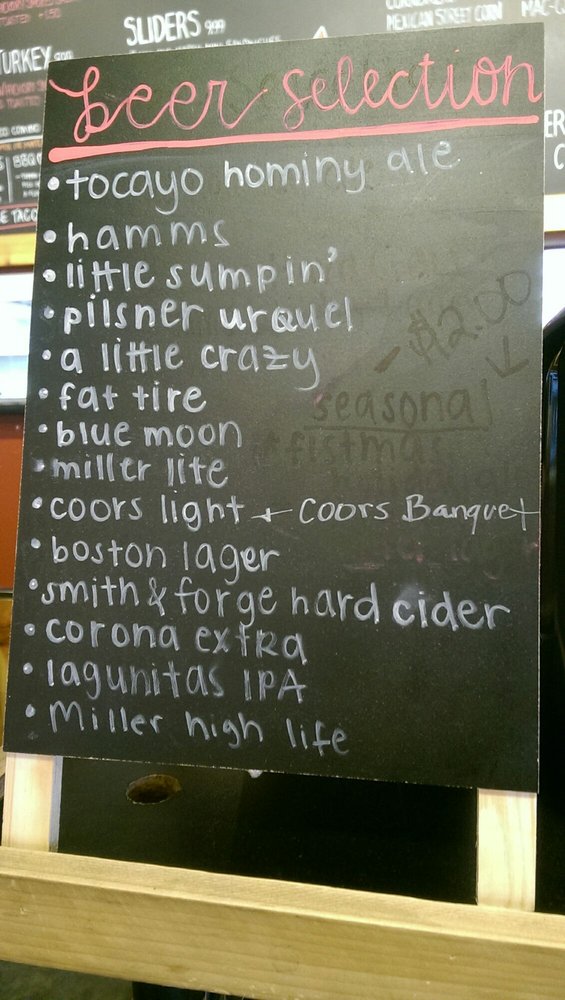 SLIDERS 9.99
MEXICAN STREET CORN
MAC-C
TURKEY 9.99
beer selection
• tocayo hominy ale
• hamms
• little sumpin'
• pilsner urquel
• a little crazy
$2.00
• fat tire
seasonal
• blue moon
fistmas
• miller lite
• coors light + Coors Banquet
• boston lager
• smith & forge hard cider
• corona extra
• lagunitas IPA
• Miller high life